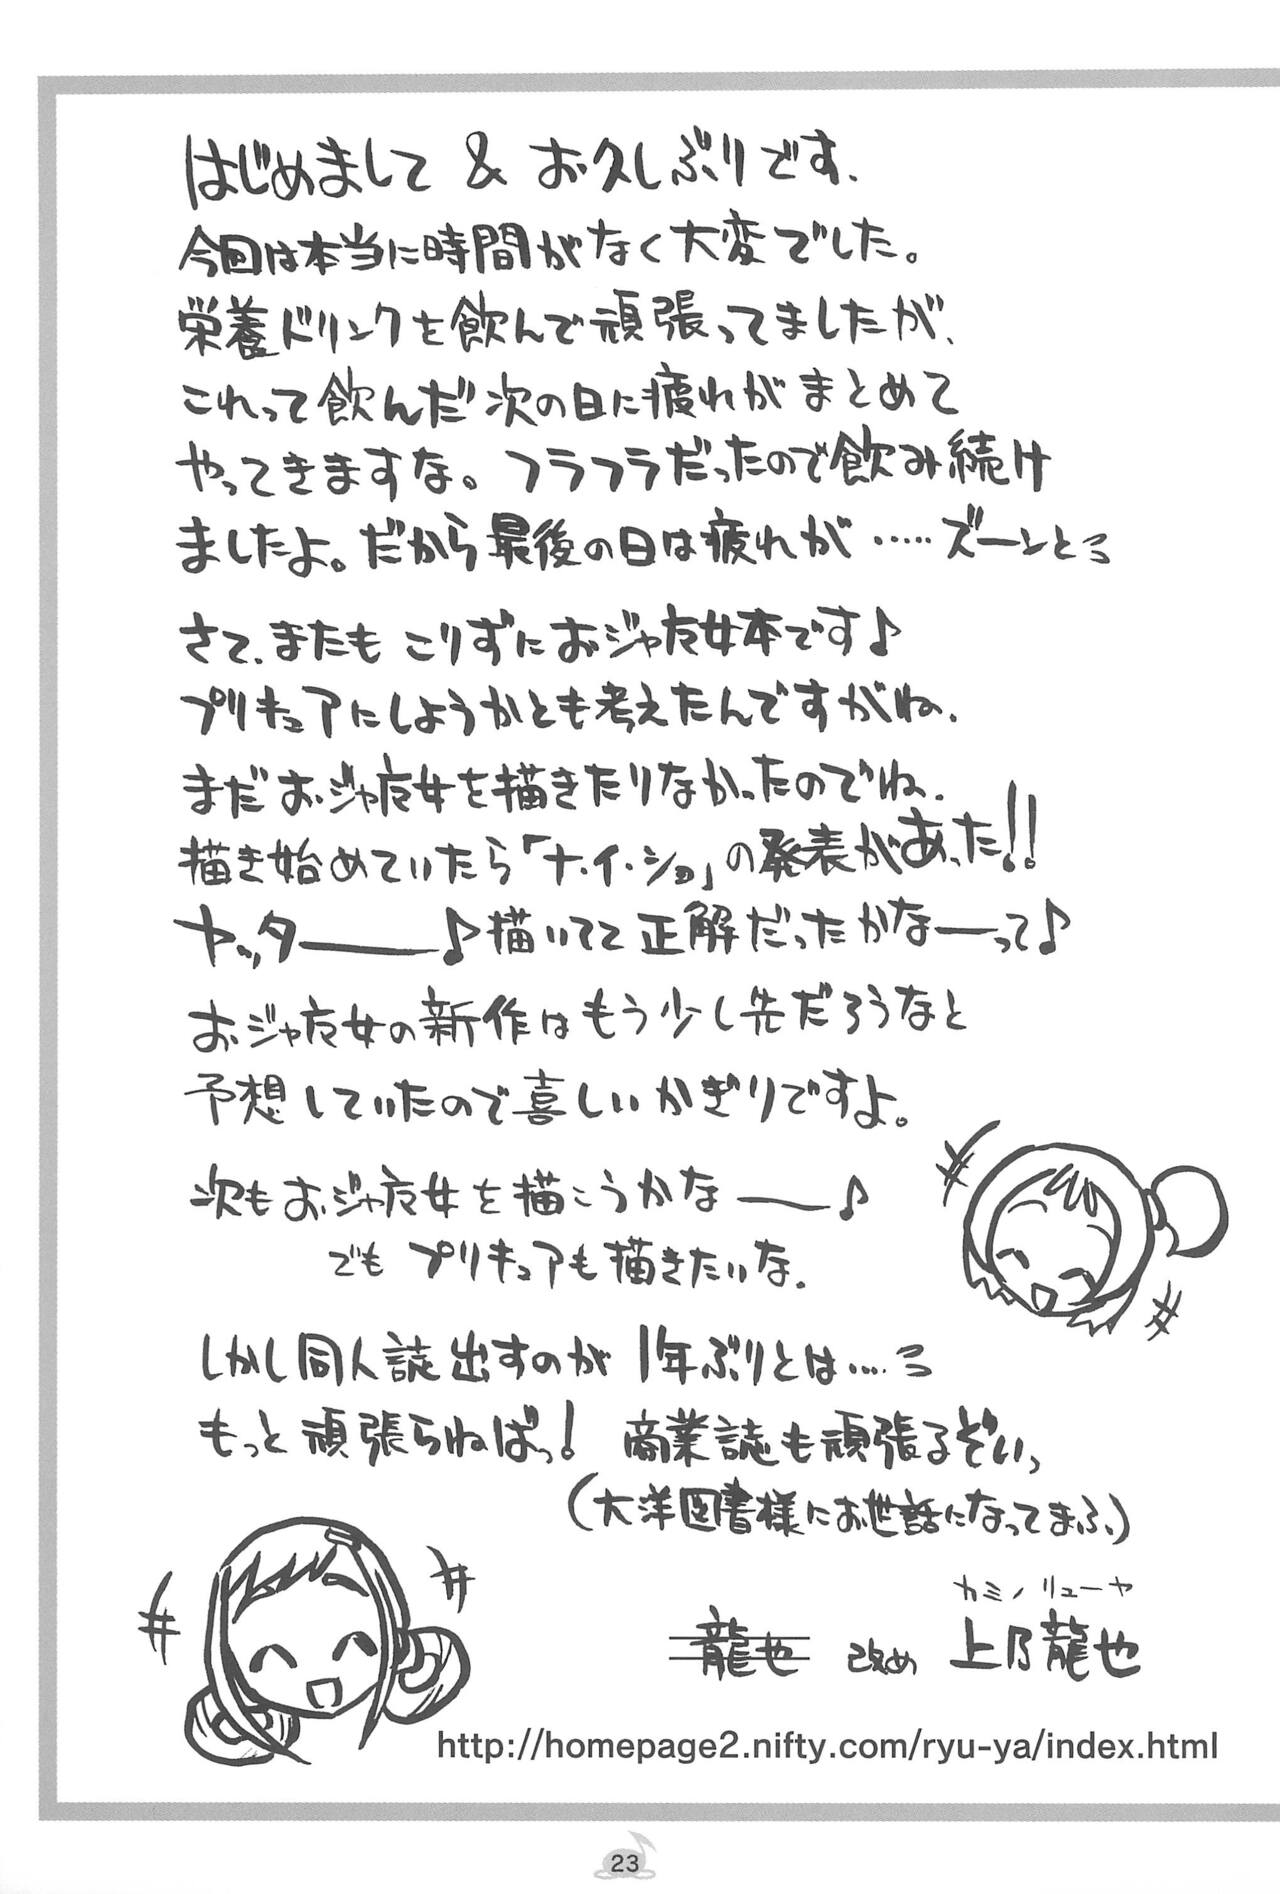 はじめまして & お久しぶりです.
今回は本当に時間がなく大変でした。
栄養ドリンクを飲んで頑張ってましたが、
これって飲んだ次の日に疲れがまとめて
やってきますな。フラフラだったので飲み続け
ましたよ。だから最後の日は疲れが……ズーンとっ
さて、またも こりずにおジャ魔女本です♪
プリキュアにしようかとも考えたんですがね、
まだおジャ魔女を描きたりなかったのでね、
描き始めていたら「ナ・イ・ショ」の発表があった!!
ヤッター――♪描いてて正解だったかなーって♪
おジャ魔女の新作はもう少し先だろうなと
予想していたので喜しいかぎりですよ。
次もおジャ魔女を描こうかな――♪
でも プリキュアも描きたいな.
しかし同人誌出すのが1年ぶりとは……っ
もっと頑張らねばっ! 商業誌も頑張るぞいっ
(大洋図書様にお世話になってまふ、)
カミノリューヤ
龍也 改め 上乃龍也
http://homepage2.nifty.com/ryu-ya/index.html
23